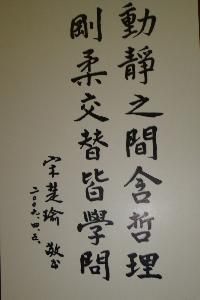 動靜之間含哲理
剛柔交替皆學問
宋楚瑜 敬書
二〇〇六.四.五.